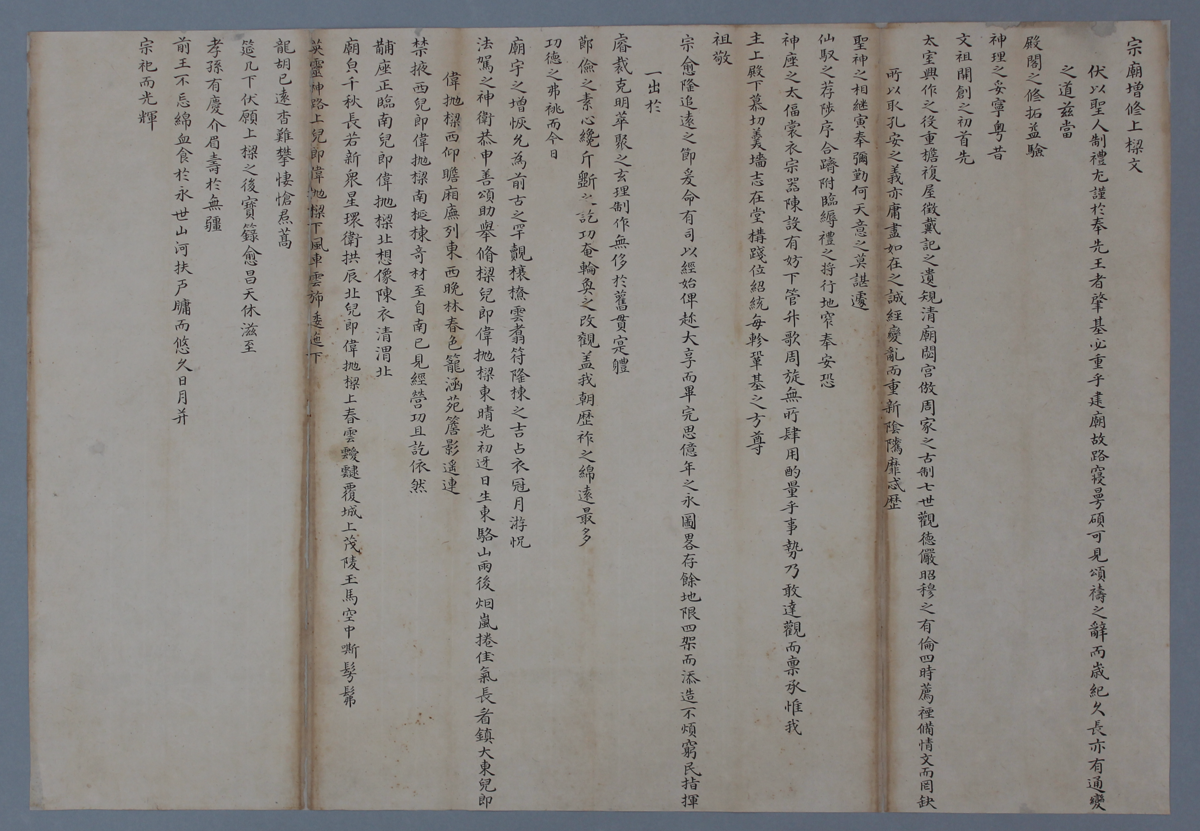 宗廟增修上樑文
伏以聖人制禮尤謹於奉先王者肇基必重乎建廟故路寢曼碩可見頌禱之辭而歲紀久長亦有通變
之道玆當
殿閣之修拓益驗
神理之妥寧粤昔
文祖開創之初首先
太室興作之後重檐複屋徵戴記之遺規清廟閟宮倣周家之古制七世觀德儼昭穆之有倫四時薦禋備情文而罔缺
所以取孔安之義亦庸盡如在之誠經變亂而重新陰隲靡忒歷
聖神之相繼寅奉彌勤何天意之莫諶遽
仙馭之荐陟序合躋附臨縟禮之將行地窄奉安恐
神座之太偪裳衣宗器陳設有妨下管升歌周旋無所肆用酌量乎事勢乃敢達觀而禀承惟我
主上殿下慕切羹墻志在堂構踐位紹統每軫鞏基之方尊
祖敬
宗愈隆追遠之節爰命有司以經始俾趂大享而畢完思億年之永圖畧存餘地限四架而添造不煩窮民指揮
一出於
睿裁克明萃聚之玄理制作無侈於舊貫寔軆
鄭儉之素心纔斤斲之訖功奄輪奐之改觀盖我朝歷祚之綿遠最多
功德之弗祧而今日
廟宇之增恢允為前古之罕覿欀橑雲翥符隆棟之吉占衣冠月游怳
法駕之神衛恭申善頌助擧脩樑兒郎偉拋樑東晴光初迓日生東駱山雨後烟嵐捲佳氣長看鎮大東兒郎
偉拋樑西仰瞻廂廡列東西晩林春色籠涵苑簷影遥連
禁掖西兒郎偉拋樑南梃棟奇材至自南已見經營功且訖依然
黼座正臨南兒郎偉拋樑北想像陳衣清渭北
廟㒵千秋長若新衆星環衛拱辰北兒郎偉拋樑上春雲靉靆覆城上茂陵玉馬空中嘶髣髴
英靈神路上兒郎偉拋樑下風車雲旆逶迤下
龍胡已遠杳難攀悽愴焄蒿
筵几下伏願上樑之後寶籙愈昌天休滋至
孝孫有慶介眉壽於無疆
前王不忘綿血食於永世山河扶戶牖而悠久日月幷
宗祀而光輝